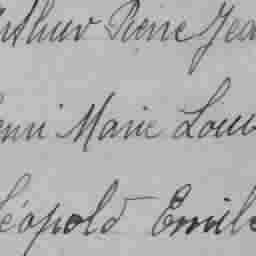 Arthur Pierre Jea
enri Marie Loui
Léopold Emile